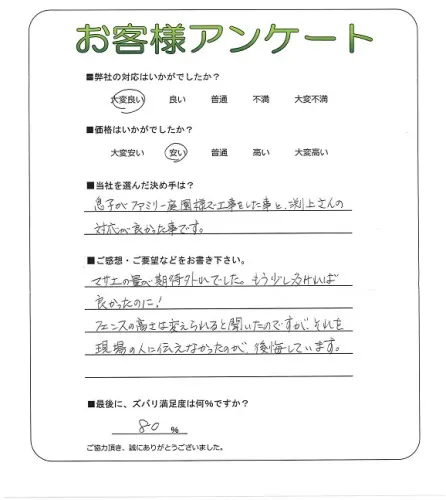 お客様アンケート
■弊社の対応はいかがでしたか？
大変良い 良い 普通 不満 大変不満
■価格はいかがでしたか？
大変安い 安い 普通 高い 大変高い
■当社を選んだ決め手は？
息子がファミリー庭園様で工事をした事と、渕上さんの
対応が良かった事です。
■ご感想・ご要望などをお書き下さい。
マサエの量が期待外れでした。もう少し多ければ
良かったのに！
フェンスの高さは変えられると聞いたのですが、それを
現場の人に伝えなかったのが、後悔しています。
■最後に、ズバリ満足度は何％ですか？
80 ％
ご協力頂き、誠にありがとうございました。